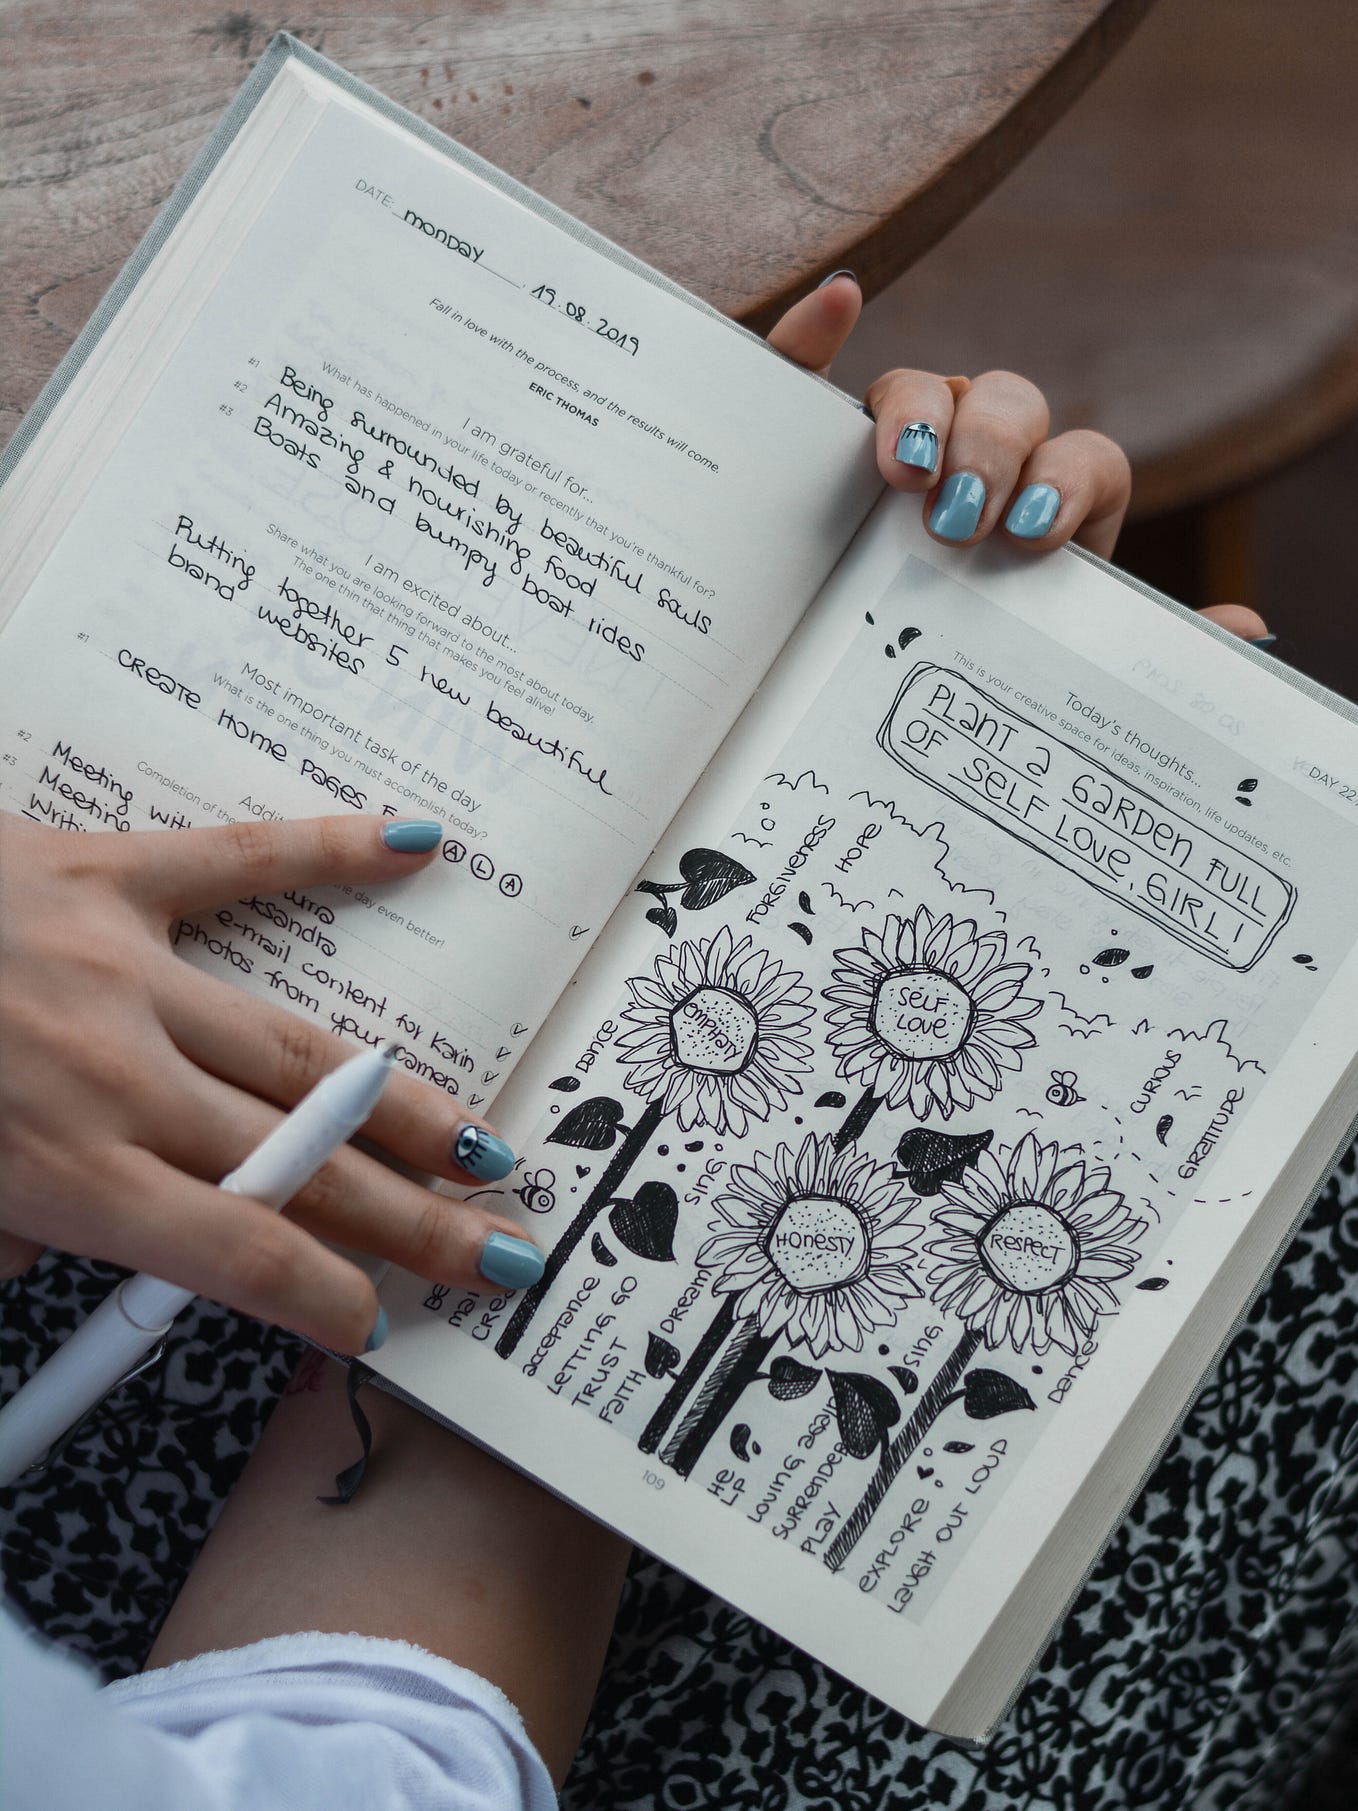 DATE: monday 19.08.2019
Fall in love with the process, and the results will come.
ERIC THOMAS
I am grateful for...
What has happened in your life today or recently that you're thankful for?
#1 Being surrounded by beautiful souls
#2 Amazing & nourishing food
#3 Boats and bumpy boat rides
I am excited about...
Share what you are looking forward to the most about today.
The one thin that thing that makes you feel alive!
Putting together 5 new beautiful
brand websites
Most important task of the day
What is the one thing you must accomplish today?
#1 CREATE HOME PAGES
A L A
Addit
Completion of the
he day even better!
#2 Meeting with
#3 Meeting
ksandra
Writi
e-mail content for Karin
photos from your camera
DAY 22
Today's thoughts...
This is your creative space for ideas, inspiration, life updates, etc.
PLANT a GARDEN FULL
OF SELF LOVE, GIRL!
FORGIVENESS
HOPE
EMPHATY
SELF
LOVE
DANCE
CURIOUS
GRATITUDE
SING
HONESTY
RESPECT
acceptance
LETTING GO
TRUST
FAITH
DREAM
SING
Dance
HE
LP
LOVING again
SURRENDER
PLAY
EXPLORE
LAUGH OUT LOUD
109